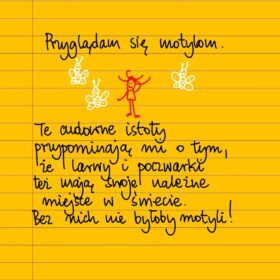 Przyglądam się motylom.
Te cudowne istoty
przypominają mi o tym,
że larwy i poczwarki
też mają swoje należne
miejste w świecie.
Bez nich nie byłoby motyli!